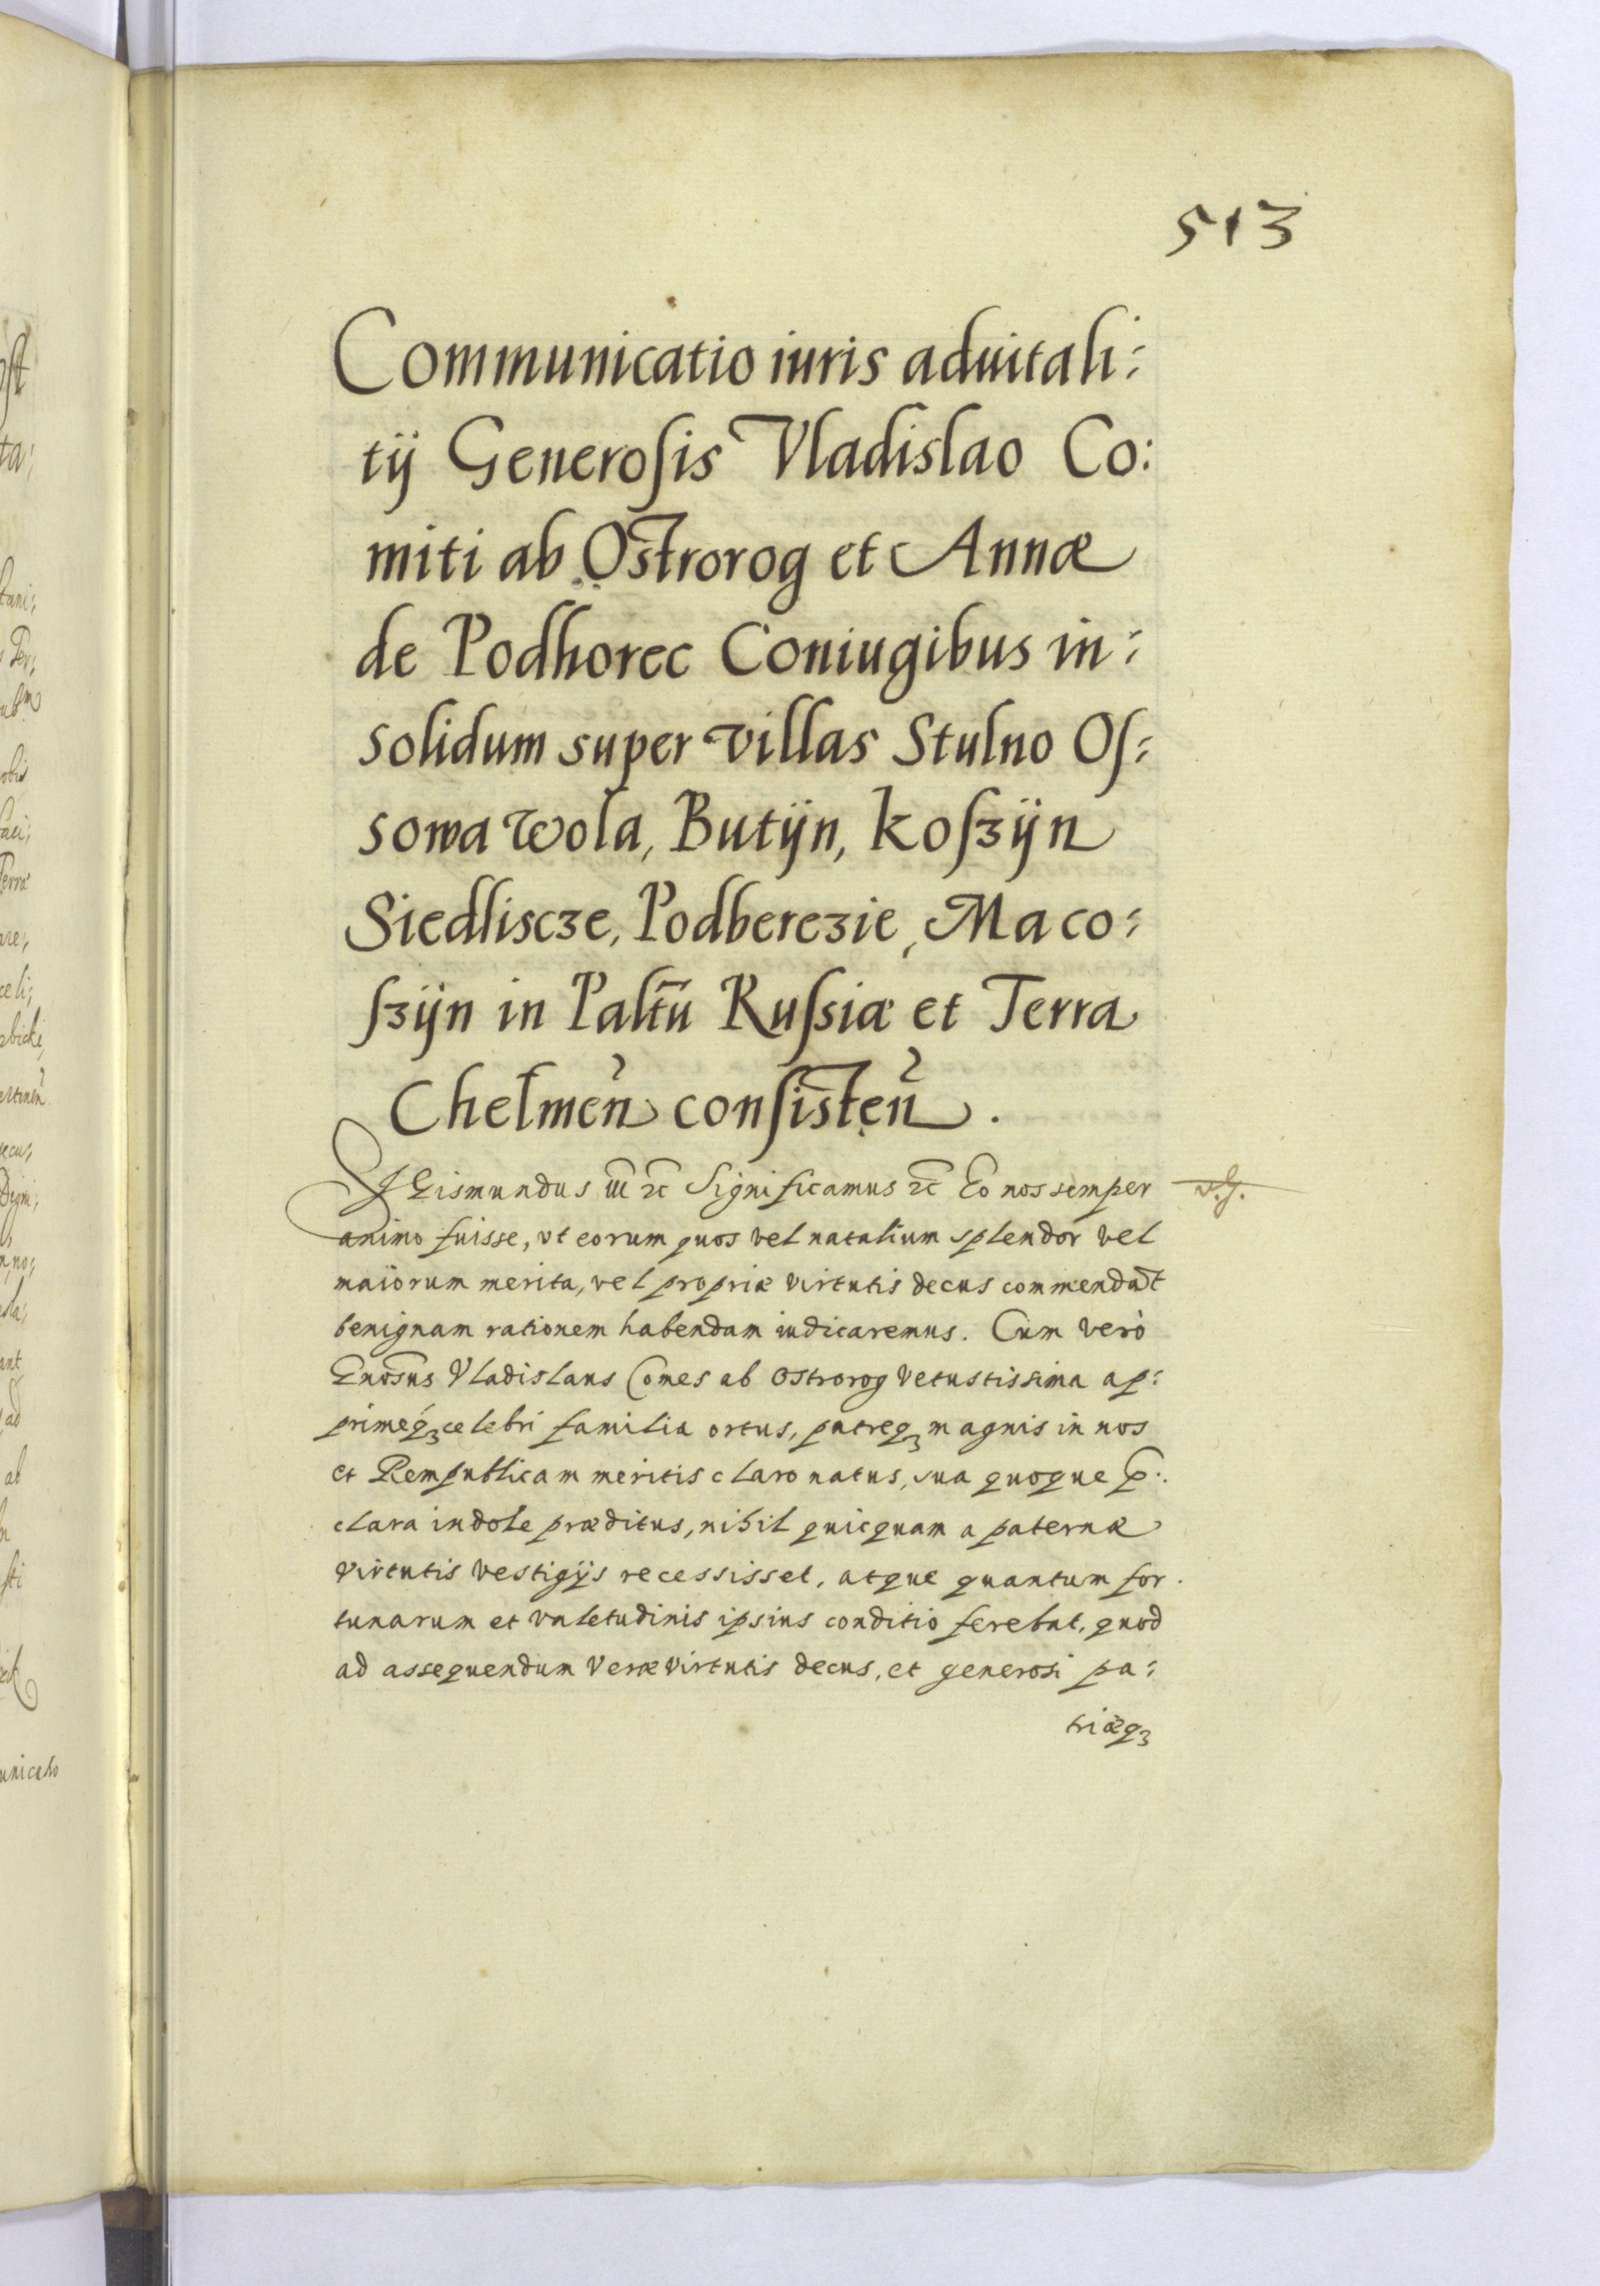 513
Communicatio iuris aduitali:
tij Generosis Vladislao Co:
miti ab Ostrorog et Annæ
de Podhorec Coniugibus in:
solidum super villas Stulno Os:
sowa wola, Butijn, koszijn
Siedliscze, Podberezie, Maco:
szijn in Paltũ Russiæ et Terra
Chelmeñ consisteñ.
Sigismundus III etc Significamus etc Eo nos semper
animo fuisse, vt eorum quos vel natalium splendor vel
maiorum merita, vel propriæ virtutis decus commendãt
benignam rationem habendam iudicaremus. Cum verò
Gnosus Vladislaus Comes ab Ostrorog vetustissima ap:
primeq́ꝫ celebri familia ortus, patreqꝫ magnis in nos
et Rempublicam meritis claro natus, sua quoque p̃:
clara indole præditus, nihil quicquam a paternæ
virtutis vestigijs recessisset, atque quantum for
tunarum et valetudinis ipsius conditio ferebat, quod
ad assequendum veræ virtutis decus, et generosi pa:
triæqꝫ